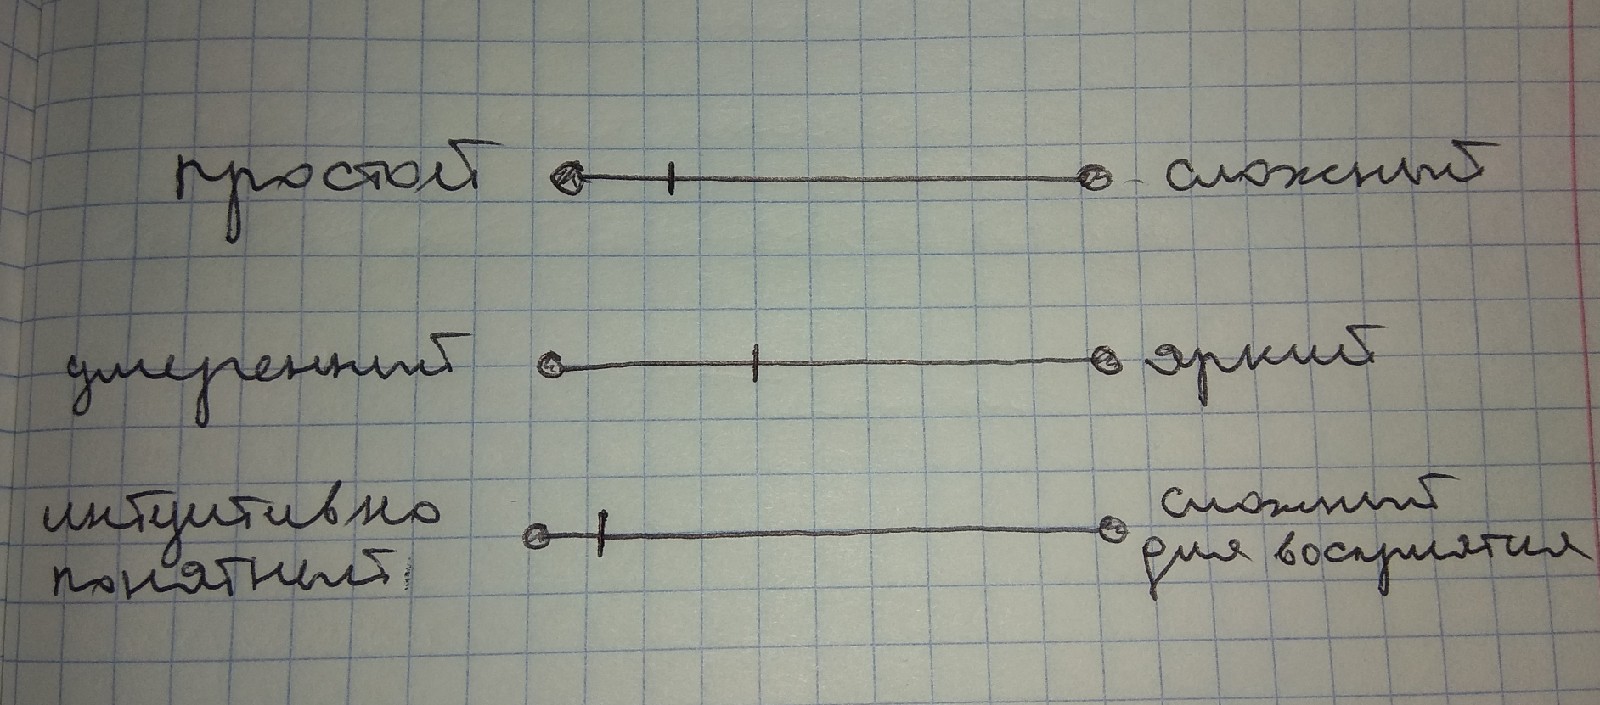 простой сложный
умеренный яркий
интуитивно сложный
понятный для восприятия